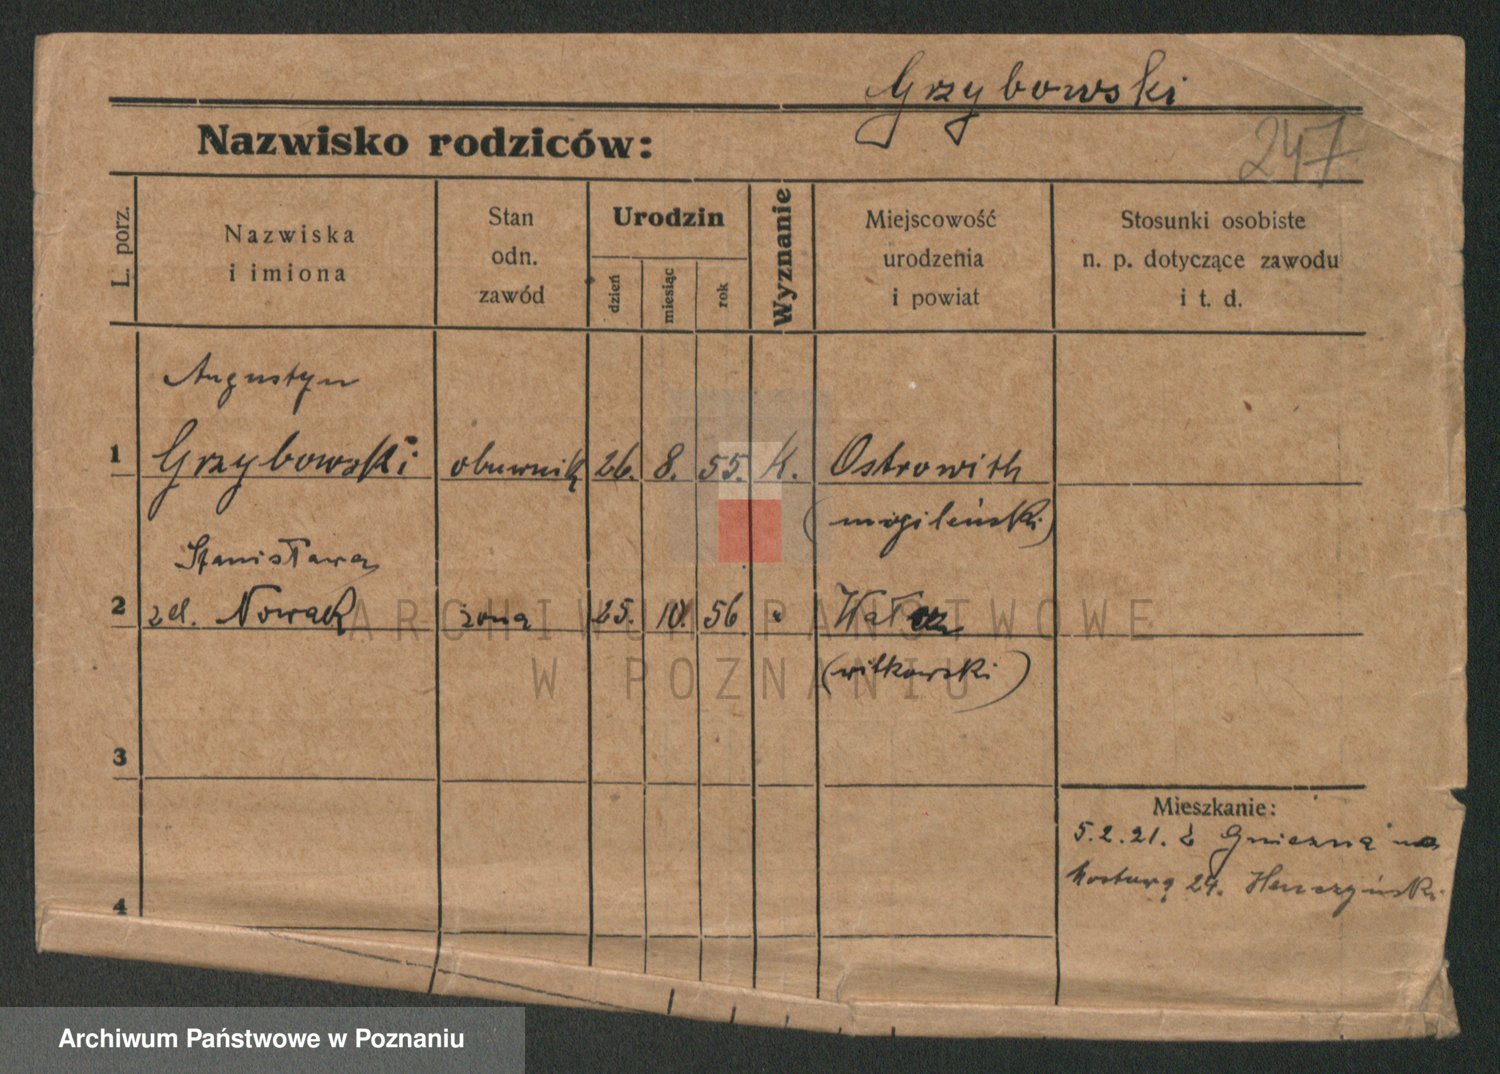 Grzybowski
Nazwisko rodziców:
247
L. porz.
Nazwiska
i imiona
Stan
odn.
zawód
Urodzin
dzień
miesiąc
rok
Wyznanie
Miejscowość
urodzenia
i powiat
Stosunki osobiste
n. p. dotyczące zawodu
i t. d.
Augustyn
1 Grzybowski obuwnik 26. 8. 55. k. Ostrowith
(mogileński)
Stanisława
2 zd. Nowak żona 25. 10. 56 "
(witkowski)
3
4
Mieszkanie:
5.2.21. z Gniezna na
24.
ARCHIWUM PAŃSTWOWE
W POZNANIU
Archiwum Państwowe w Poznaniu